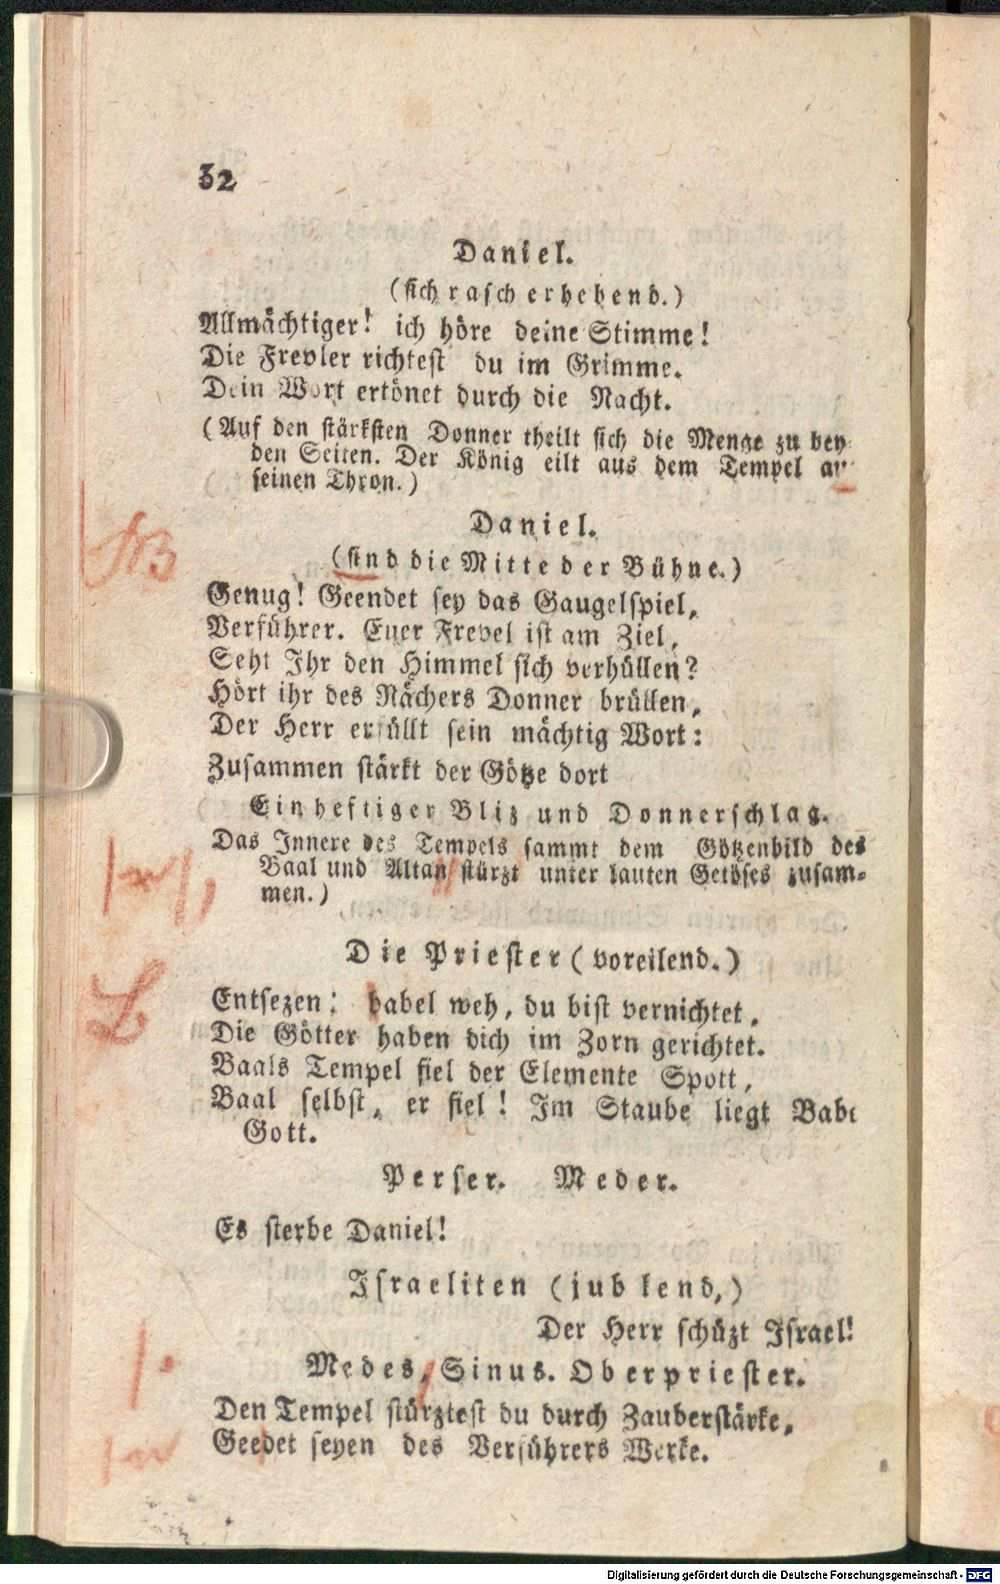 32
Daniel.
(sich rasch erhebend.)
Allmächtiger! ich höre deine Stimme!
Die Frevler richtest du im Grimme.
Dein Wort ertönet durch die Nacht.
(Auf den stärksten Donner theilt sich die Menge zu bey
den Seiten. Der König eilt aus dem Tempel au
seinen Thron.)
Daniel.
NB (sind die Mitte der Bühne.)
Genug! Geendet sey das Gaugelspiel,
Verführer. Euer Frevel ist am Ziel,
Seht Ihr den Himmel sich verhüllen?
Hört ihr des Rächers Donner brüllen,
Der Herr erfüllt sein mächtig Wort:
Zusammen stärkt der Götze dort
Ein heftiger Bliz und Donnerschlag.
Das Innere des Tempels sammt dem Götzenbild des
Baal und Altan stürzt unter lauten Getöses zusam-
men.)
Die Priester (voreilend.)
Entsezen: babel weh, du bist vernichtet,
Die Götter haben dich im Zorn gerichtet.
Baals Tempel fiel der Elemente Spott,
Baal selbst, er fiel! Im Staube liegt Babe
Gott.
Perser. Meder.
Es sterbe Daniel!
Israeliten (jub lend,)
Der Herr schüzt Israel!
Medes, Sinus. Oberpriester.
Den Tempel stürztest du durch Zauberstärke,
Geedet seyen des Verführers Werke.
Digitalisierung gefördert durch die Deutsche Forschungsgemeinschaft - DFG